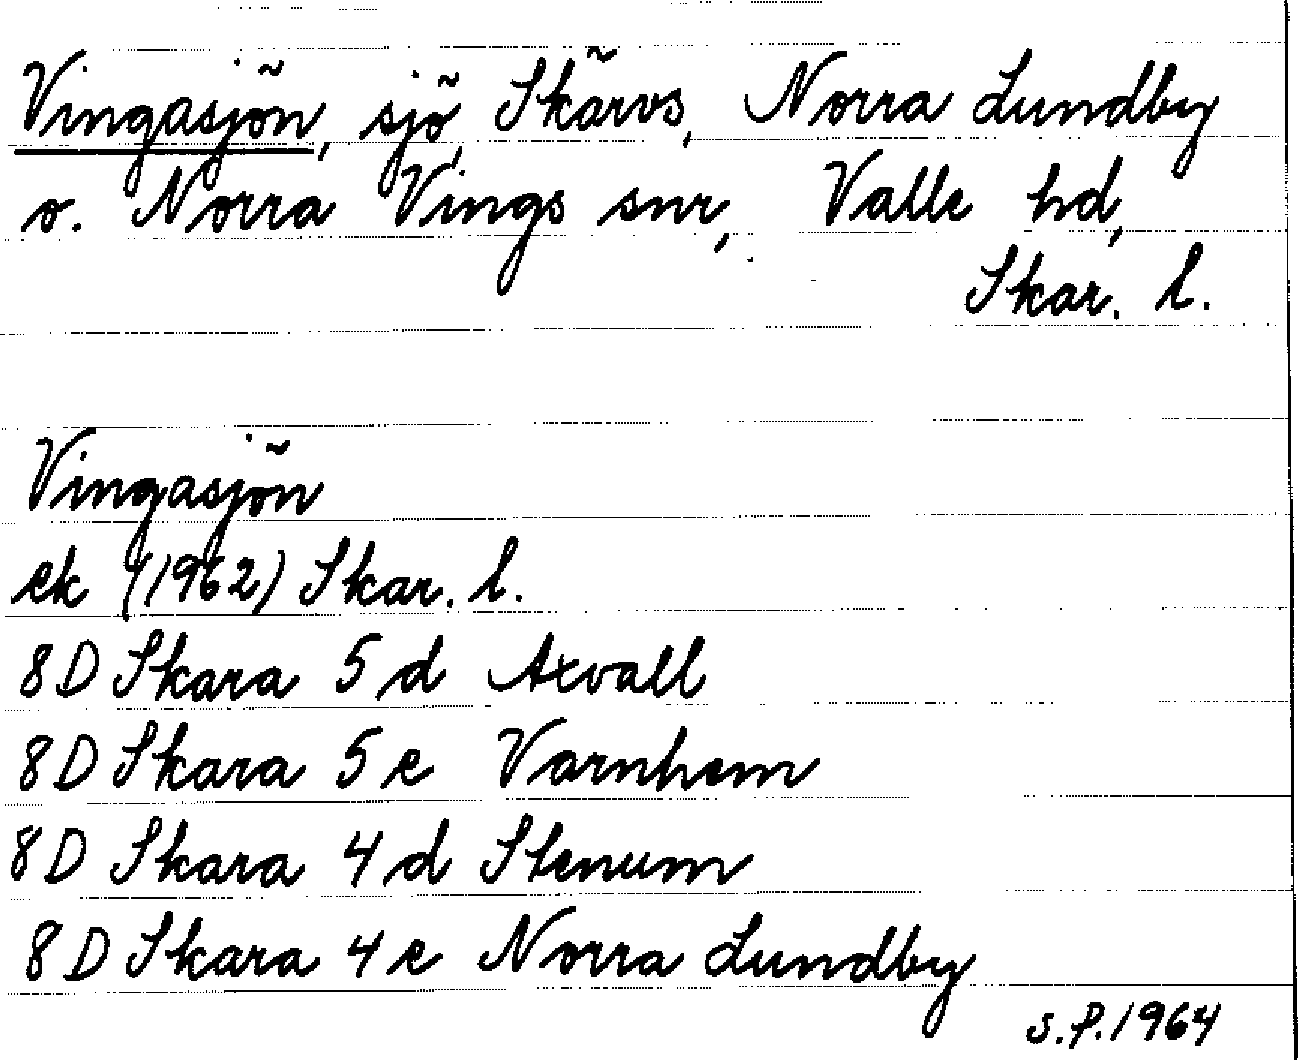 Vingasjön, sjö, Skärvs, Norra Lundby
o. Norra Vings snr, Valle hd,
Skar. l.
Vingasjön
ek (1962) Skar. l.
8D Skara 5 d Axvall
8D Skara 5 e Varnhem
8D Skara 4 d Stenum
8D Skara 4 e Norra Lundby
S.P. 1964